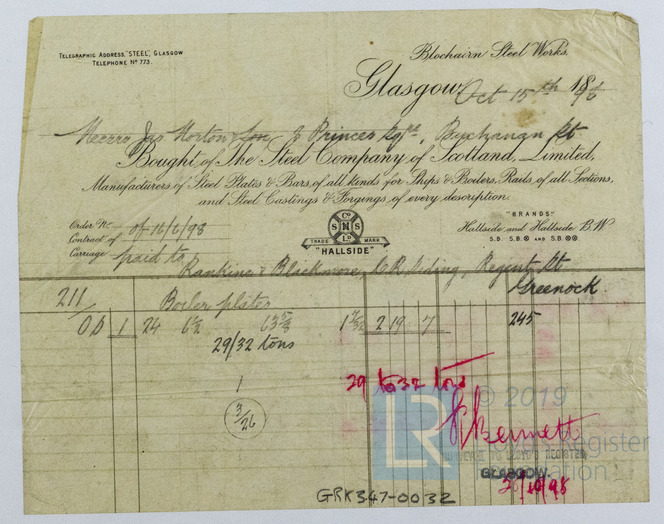 TELEGRAPHIC ADDRESS, "STEEL", GLASGOW
TELEPHONE No 773.
Blochairn Steel Works.
Glasgow, Oct 15th 189
Messrs Jas Horton Son 3 Princes Sqre, Buchanan St
Bought of The Steel Company of Scotland, Limited,
Manufacturers of Steel Plates & Bars, of all kinds for Ships & Boilers, Rails, of all Sections,
and Steel Castings & Forgings of every description.
Order No
Contract of of 16/6/98
Carriage paid to
Co
S N S
LD
TRADE MARK
"HALLSIDE"
"BRANDS"
Hallside and Hallside B.W
S.B. S.B. AND S.B.
Rankine & Blackmore, C.R. Siding, Regent St
Greenock.
211 Boiler plates
OD 1 24 6½ 63⅝ 1 7/32 2 19 7 245
29/32 tons
1
3/26
29 to 32 tons
Bennett
LR © 2019
Lloyd's Register
Foundation
SURVEYOR TO LLOYD'S REGISTER,
GLASGOW.
GRK347-0032